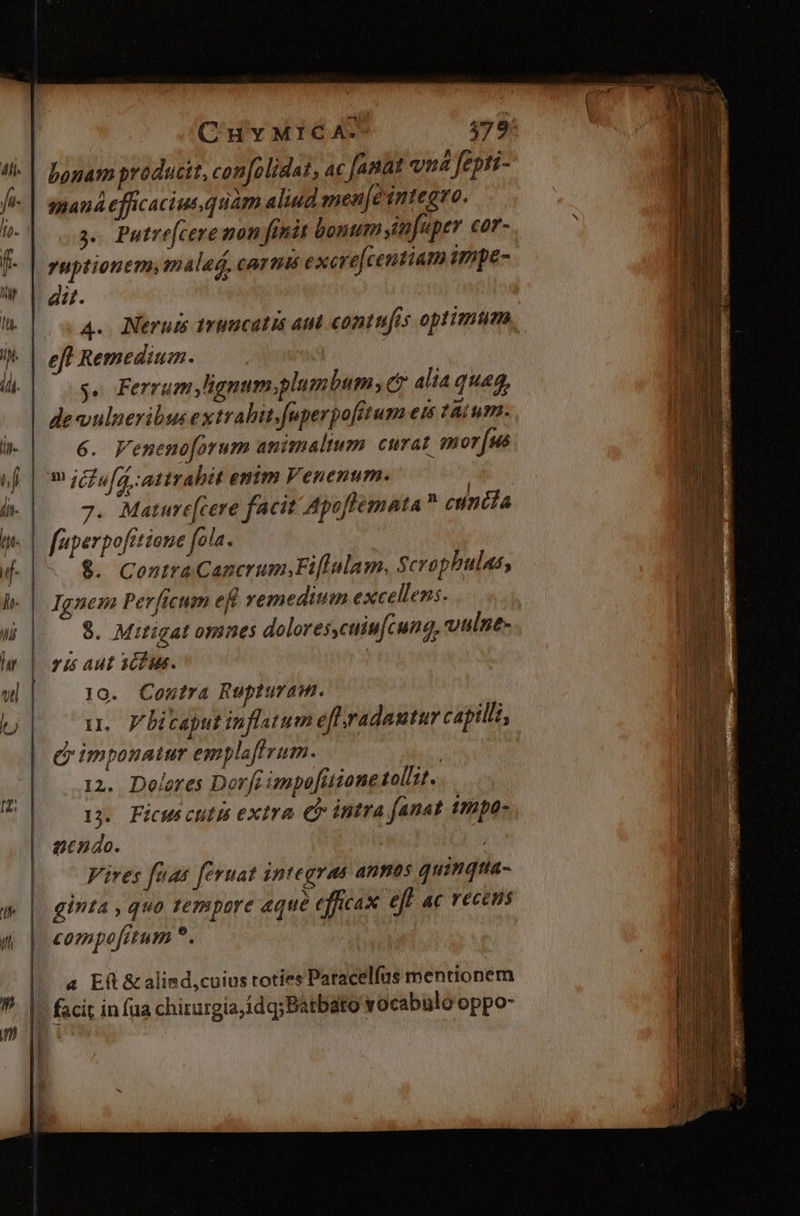 CHYMICA. 379
bonam producit, conſolidat, ac ſanat vnâ ſepti-
manâ efficacius, quàm aliud menſe integro.
3. Putreſcere non ſinit bonum, inſuper cor-
ruptionem, malaq́, carnis excreſcentiam impe-
dit.
4. Neruis truncatis aut contuſis optimum
eſt Remedium.
5. Ferrum, lignum, plumbum, & alia quæq,
de vulneribus extrahit, ſuperpoſitum eis tãtum.
6. Venenoſorum animalium curat morſus
m ictuſq́, attrahit enim Venenum.
7. Matureſcere facit Apoſtemata n cuncta
ſuperpoſitione ſola.
8. Contra Cancrum, Fiſtulam, Scrophulas,
Ignem Perſicum eſt remedium excellens.
8. Mitigat omnes dolores, cuiuſcunq, vulne-
ris aut ictus.
10. Contra Rupturam.
11. Vbi caput inflatum eſt, radantur capilli,
& imponatur emplaſtrum.
12. Dolores Dorſi impoſitione tollit.
13. Ficus cutis extra & intra ſanat impo-
nendo.
Vires ſuas ſeruat integras annos quinqua-
ginta, quo tempore æquè efficax eſt ac recens
compoſitum o.
a Eſt & aliud, cuius toties Paracelſus mentionem
facit in ſua chirurgia, idq; Barbaro vocabulo oppo-